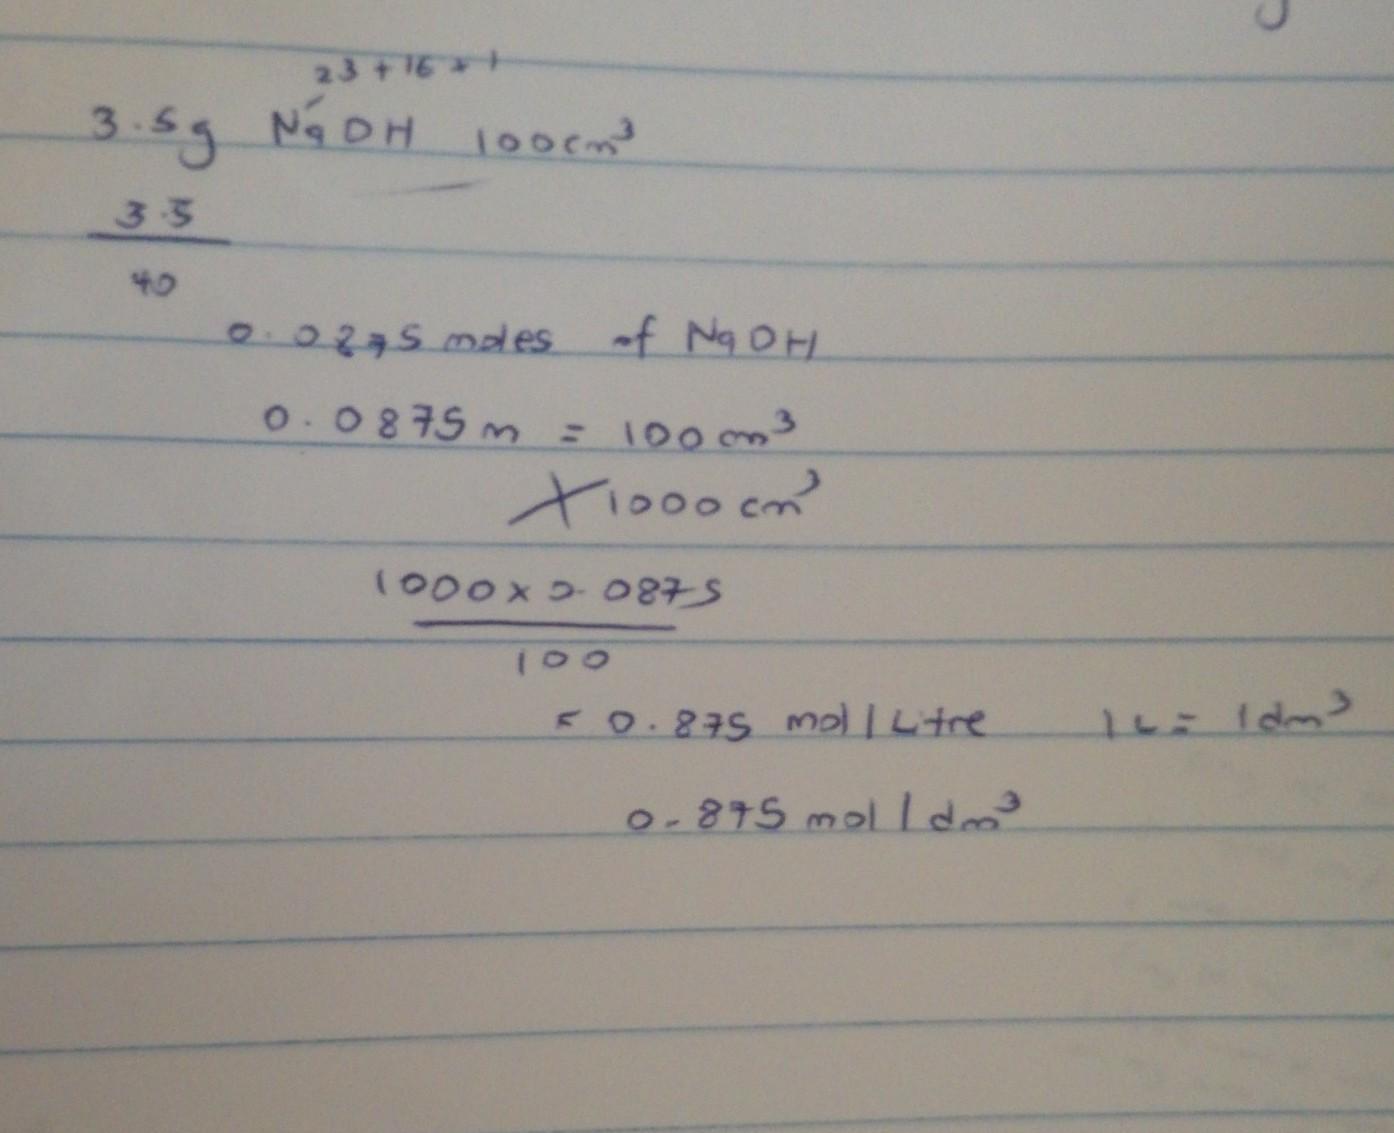 23 + 16 + 1
3.5g NaOH 100cm³
3.5
40
0.0875 moles of NaOH
0.0875 m = 100 cm³
1000 cm³
1000 x 0.0875
100
= 0.875 mol / Litre 1L = 1dm³
0.875 mol / dm³